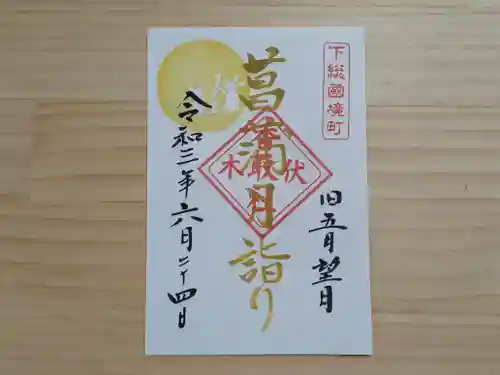 下総國境町
旧五月望月
菖蒲月詣り
伏
木
令和三年六月二十四日